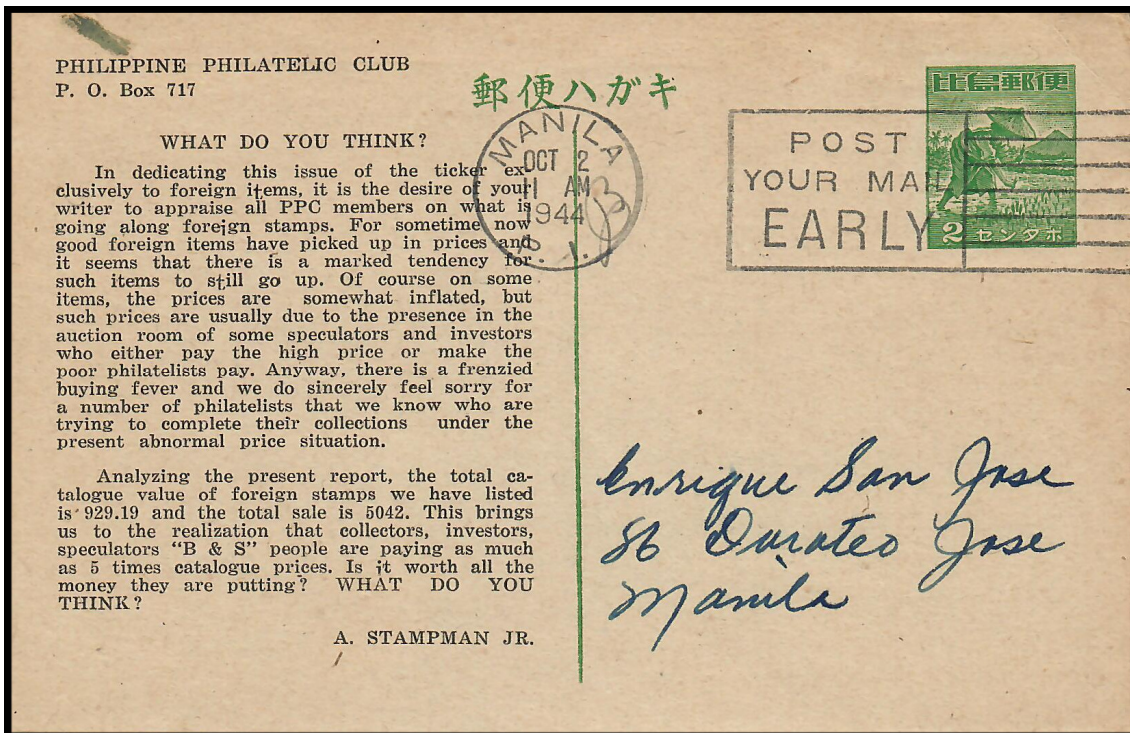 PHILIPPINE PHILATELIC CLUB
P. O. Box 717
WHAT DO YOU THINK?
In dedicating this issue of the ticker ex-
clusively to foreign items, it is the desire of your
writer to appraise all PPC members on what is
going along foreign stamps. For sometime now
good foreign items have picked up in prices and
it seems that there is a marked tendency for
such items to still go up. Of course on some
items, the prices are somewhat inflated, but
such prices are usually due to the presence in the
auction room of some speculators and investors
who either pay the high price or make the
poor philatelists pay. Anyway, there is a frenzied
buying fever and we do sincerely feel sorry for
a number of philatelists that we know who are
trying to complete their collections under the
present abnormal price situation.
Analyzing the present report, the total ca-
talogue value of foreign stamps we have listed
is 929.19 and the total sale is 5042. This brings
us to the realization that collectors, investors,
speculators "B & S" people are paying as much
as 5 times catalogue prices. Is it worth all the
money they are putting? WHAT DO YOU
THINK?
A. STAMPMAN JR.
郵便ハガキ
MANILA
OCT 2
11 AM
1944
P. I.
POST
YOUR MAIL
EARLY
比島郵便
2 センタボ
Enrique San Jose
86 Durateo Jose
Manila